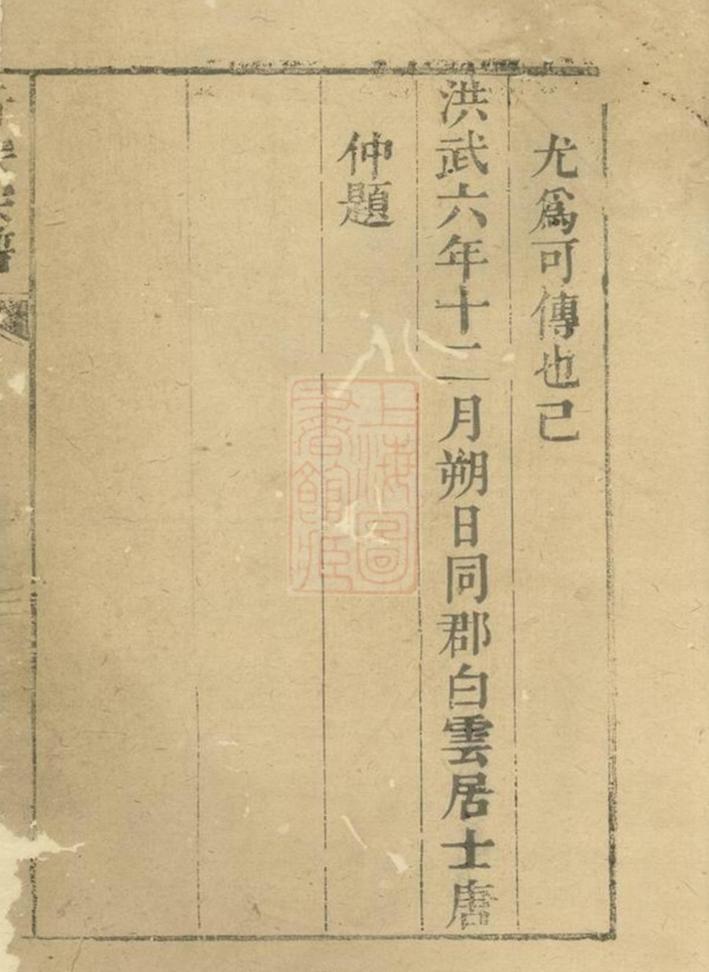 尤爲可傳也已
洪武六年十二月朔日同郡白雲居士唐
仲題
上海圖書館藏